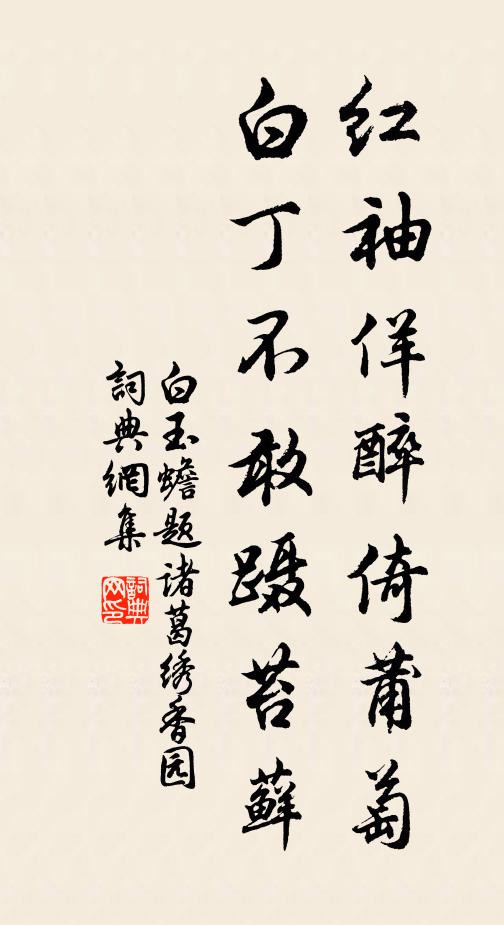 红袖佯醉倚莆萄
白丁不敢蹑苔藓
白玉蟾题诸葛绣香园
詞典網集
詞典
网印